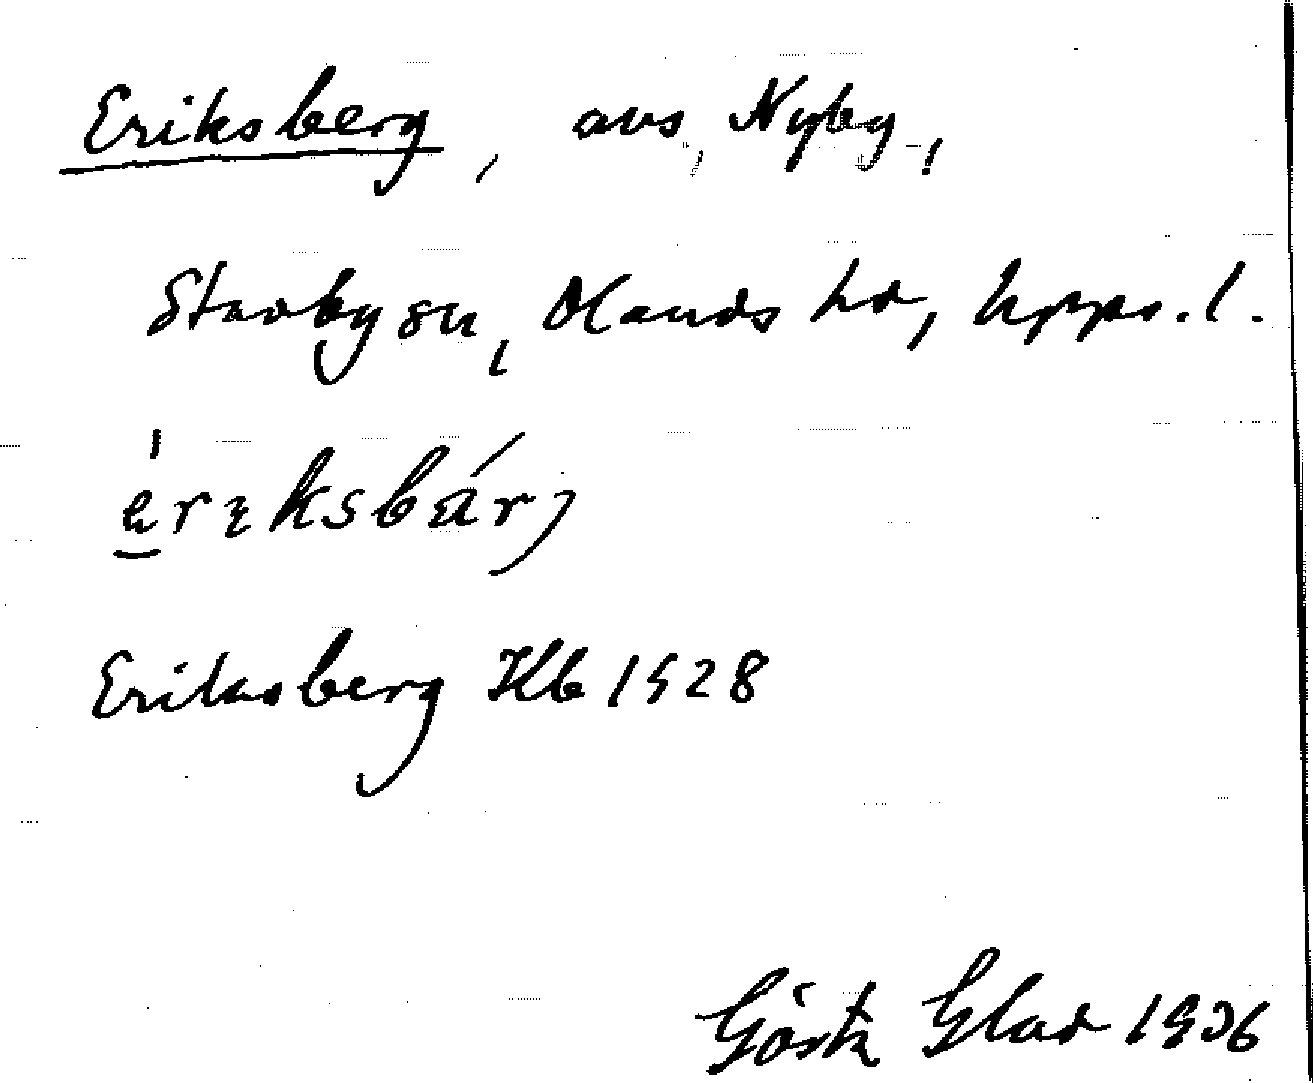 Eriksberg, avs, Nyby,
Stavby sn, Olands hd, Upps. l.
Eriksberg Kb 1928
Gösta Glad 1936